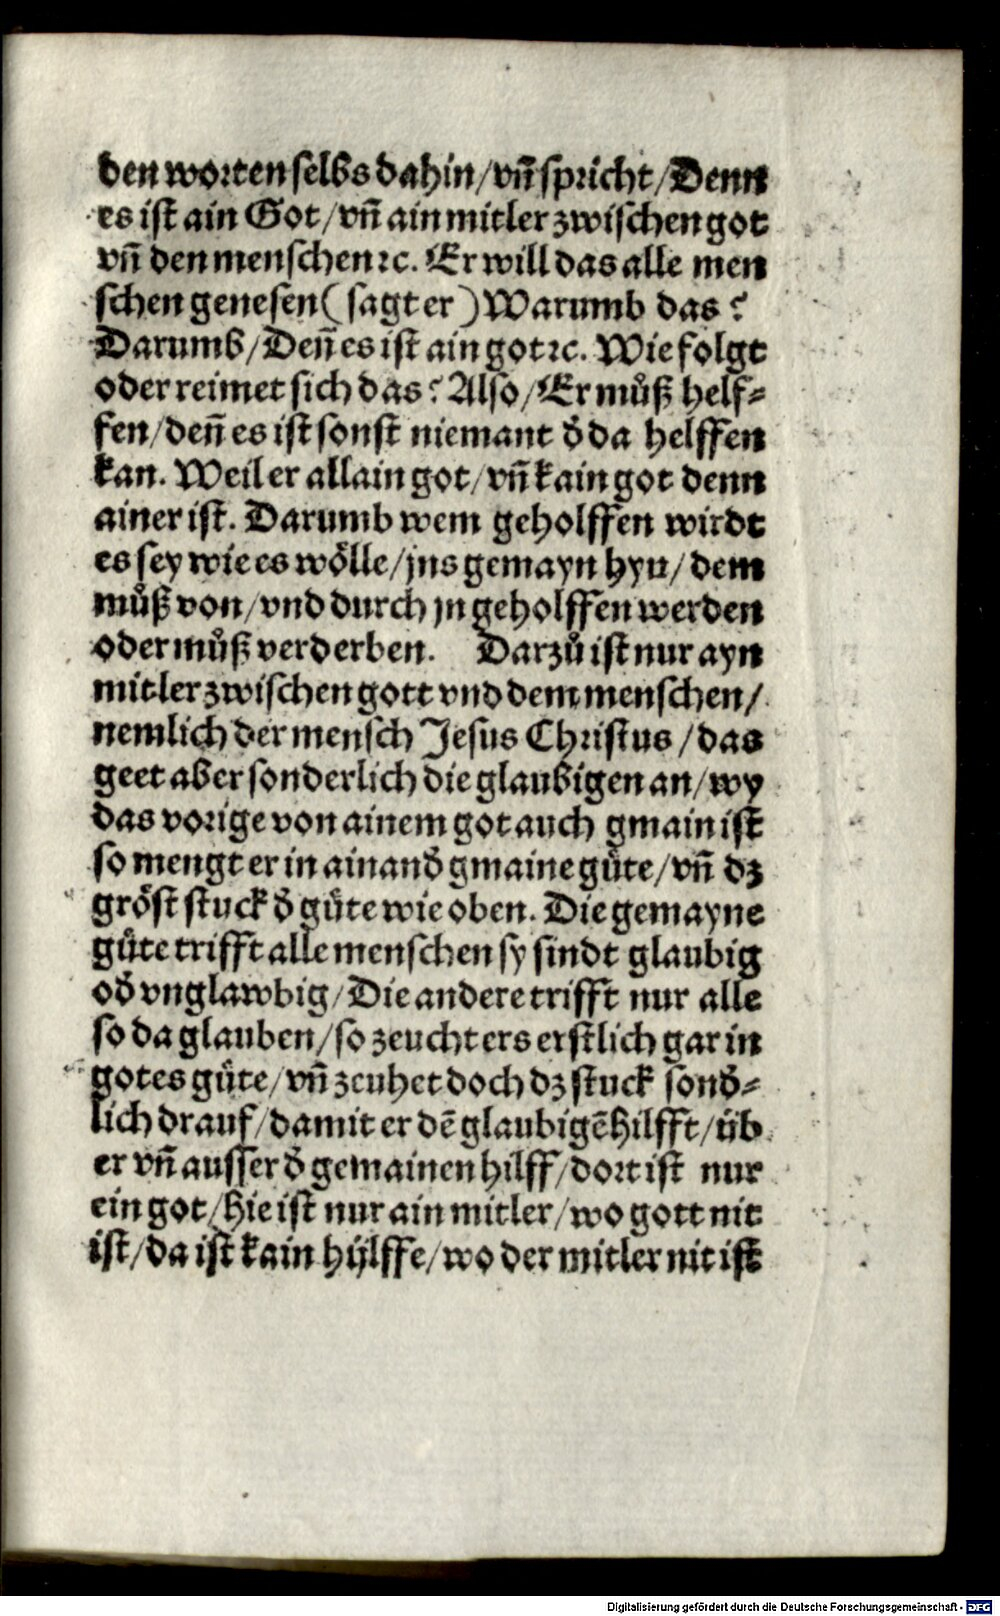 den worten selbs dahin/vñ spricht/Denn
es ist ain Got/vñ ain mitler zwischen got
vñ den menschen ꝛc. Er will das alle men
schen genesen (sagt er) Warumb das?
Darumb/Deñ es ist ain got ꝛc. Wie folgt
oder reimet sich das? Also/Er můß helf⸗
fen/deñ es ist sonst niemant ð da helffen
kan. Weil er allain got/vñ kain got denn
ainer ist. Darumb wem geholffen wirdt
es sey wie es wölle/jns gemayn hyn/dem
můß von/vnd durch jn geholffen werden
oder můß verderben. Darzů ist nur ayn
mitler zwischen gott vnd dem menschen/
nemlich der mensch Jesus Christus/das
geet aber sonderlich die glaubigen an/wy
das vorige von ainem got auch gmain ist
so mengt er in ainanð gmaine güte/vñ dz
gröst stuck ð güte wie oben. Die gemayne
güte trifft alle menschen sy sindt glaubig
oð vnglawbig/Die andere trifft nur alle
so da glauben/so zeucht ers erstlich gar in
gotes güte/vñ zeuhet doch dz stuck sonð⸗
lich drauf/damit er dē glaubigē hilfft/üb
er vñ ausser ð gemainen hilff/dort ist nur
ein got/hie ist nur ain mitler/wo gott nit
ist/da ist kain hÿlffe/wo der mitler nit ist
Digitalisierung gefördert durch die Deutsche Forschungsgemeinschaft - DFG